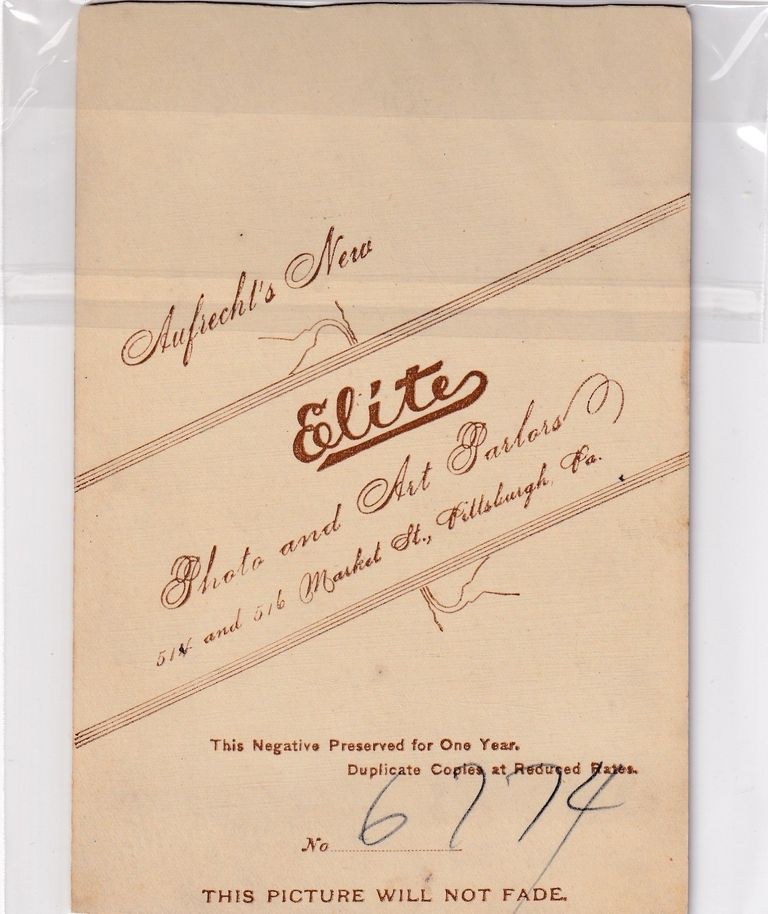 Aufrecht's New
Elite
Photo and Art Parlors
514 and 516 Market St., Pittsburgh, Pa.
This Negative Preserved for One Year.
Duplicate Copies at Reduced Rates.
No 6774
THIS PICTURE WILL NOT FADE.